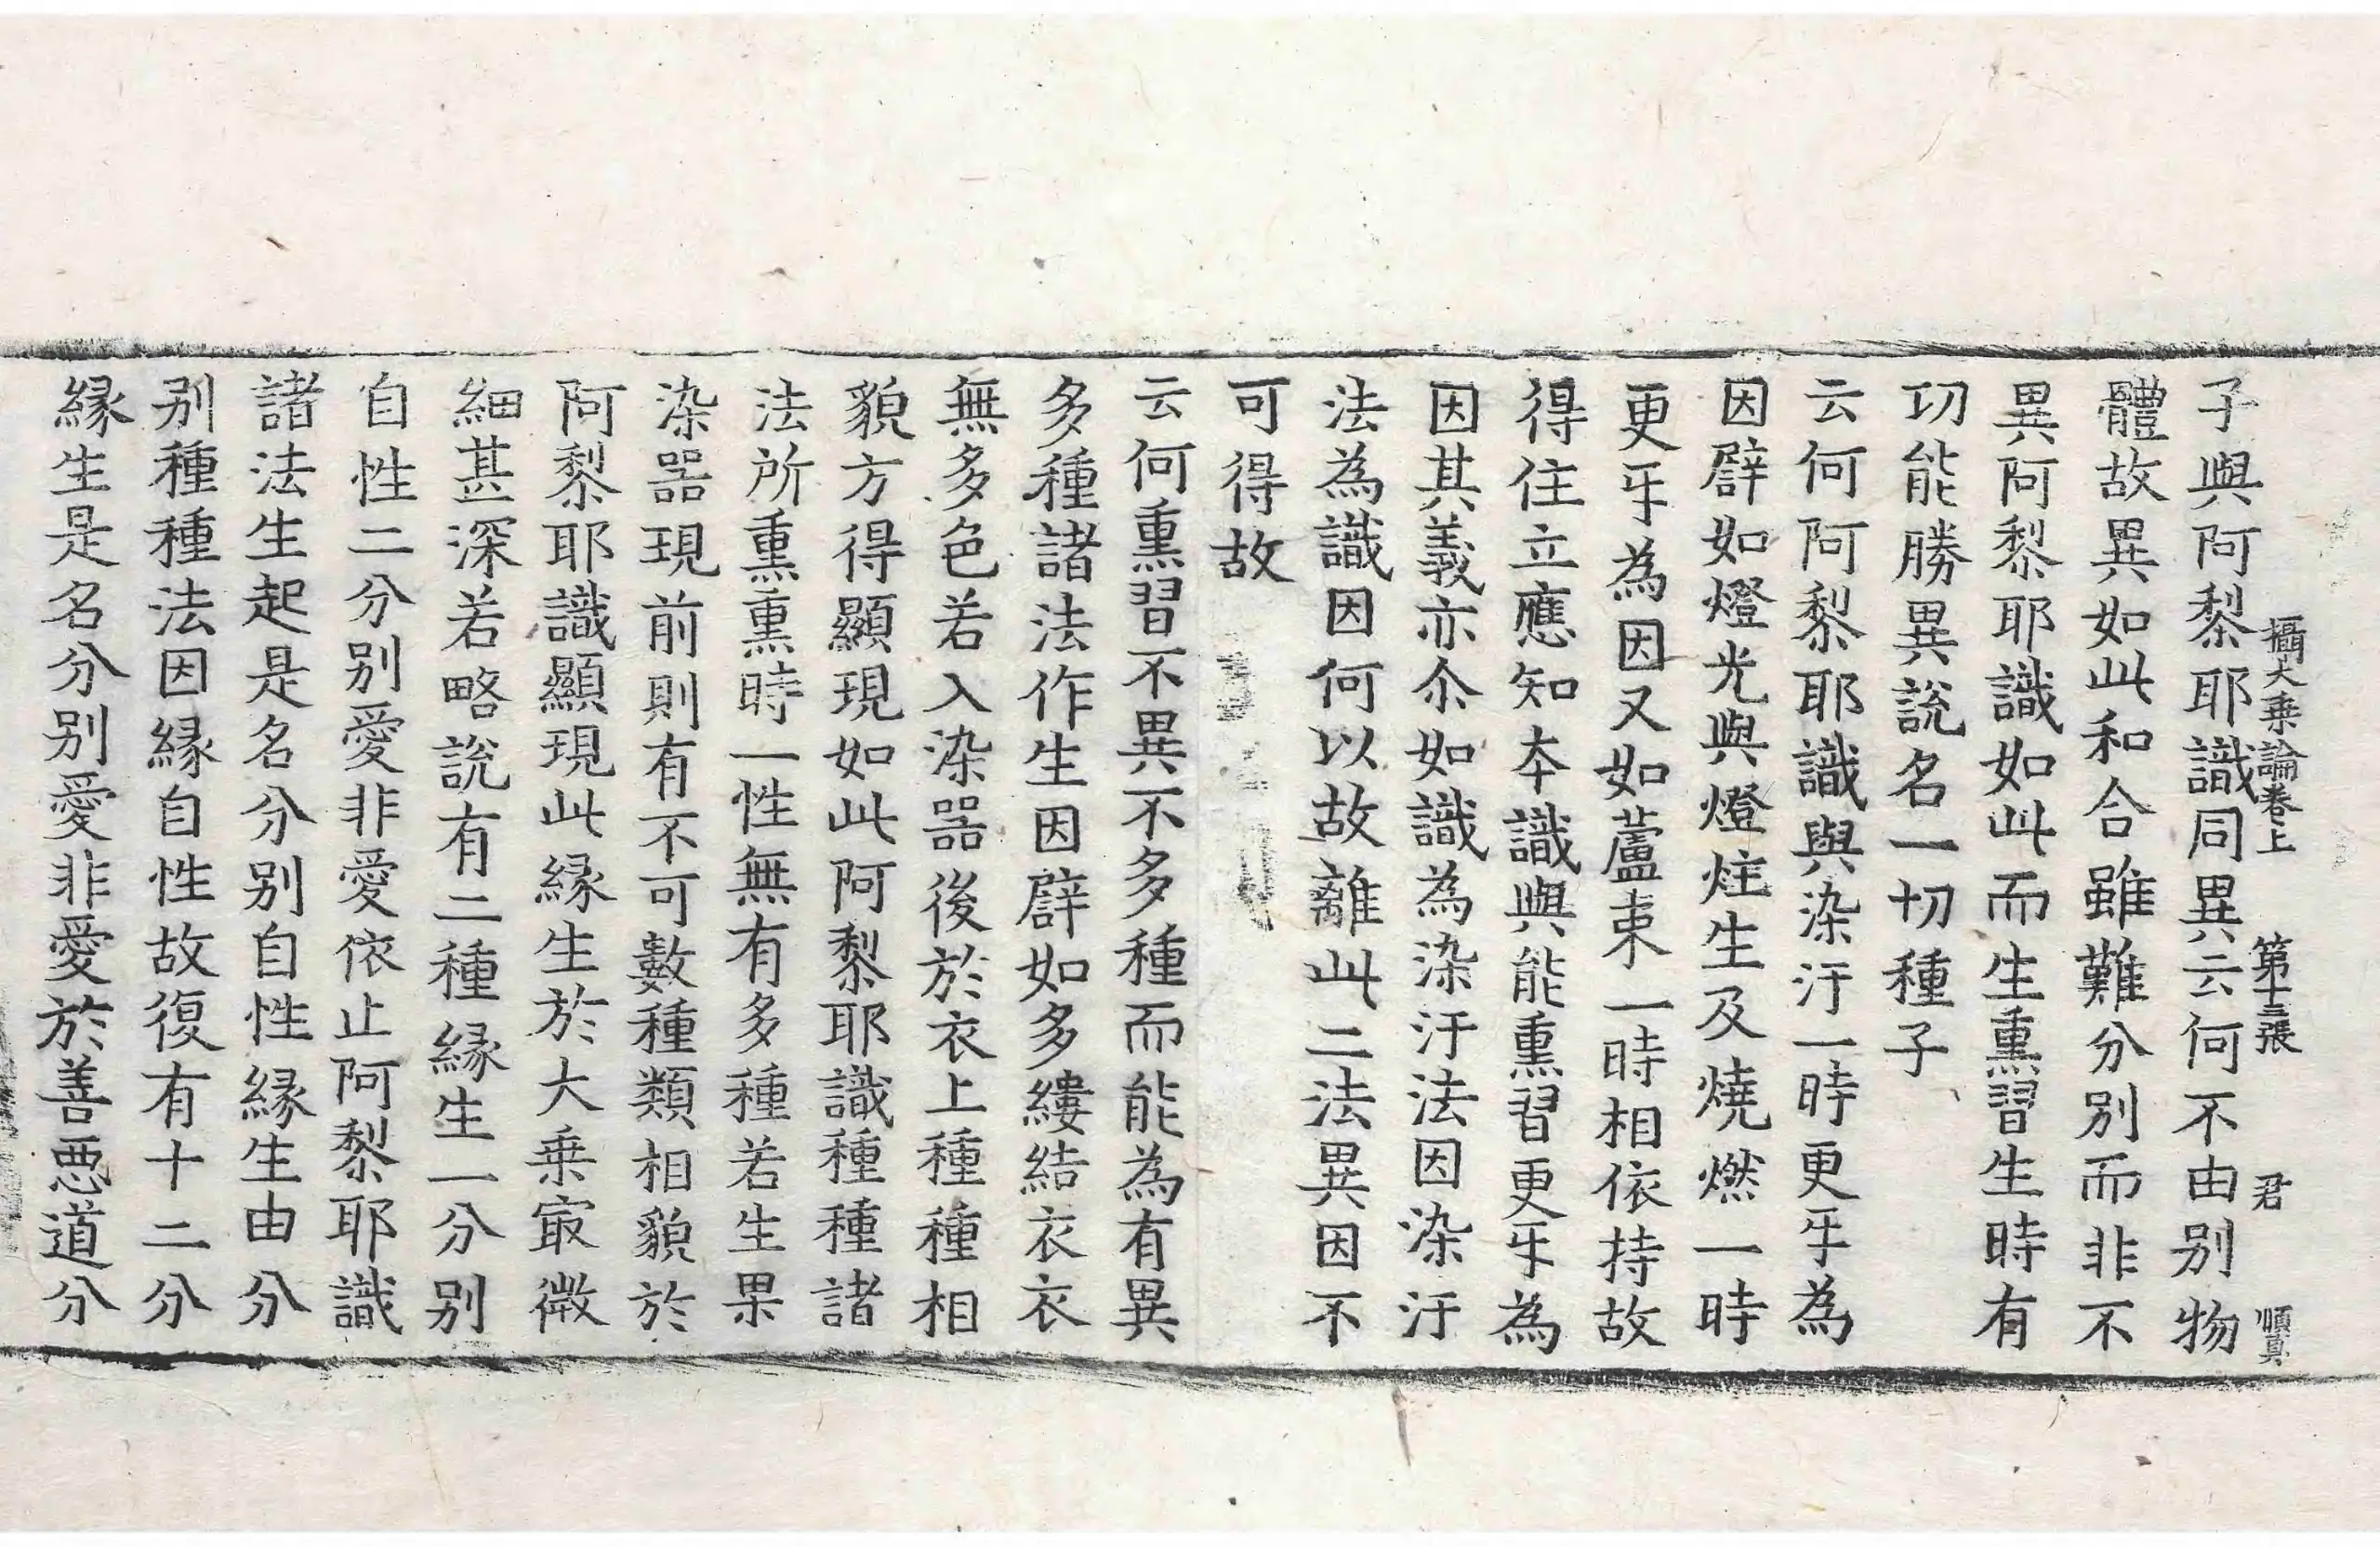 攝大乗論卷上　第十三張　君　順真
子與阿黎耶識同異云何不由別物
體故異如此和合雖難分別而非不
異阿黎耶識如此而生熏習生時有
功能勝異說名一切種子
云何阿黎耶識與染汙一時更㸦為
因辟如燈光與燈炷生及燒燃一時
更㸦為因又如蘆束一時相依持故
得住立應知本識與能熏習更㸦為
因其義亦尒如識為染汙法因染汙
法為識因何以故離此二法異因不
可得故
云何熏習不異不多種而能為有異
多種諸法作生因辟如多縷結衣衣
無多色若入染器後於衣上種種相
貌方得顯現如此阿黎耶識種種諸
法所熏熏時一性無有多種若生果
染器現前則有不可數種類相貌於
阿黎耶識顯現此緣生於大乗冣微
細甚深若略說有二種緣生一分別
自性二分別愛非愛依止阿黎耶識
諸法生起是名分別自性緣生由分
別種種法因緣自性故復有十二分
緣生是名分別愛非愛於善惡道分